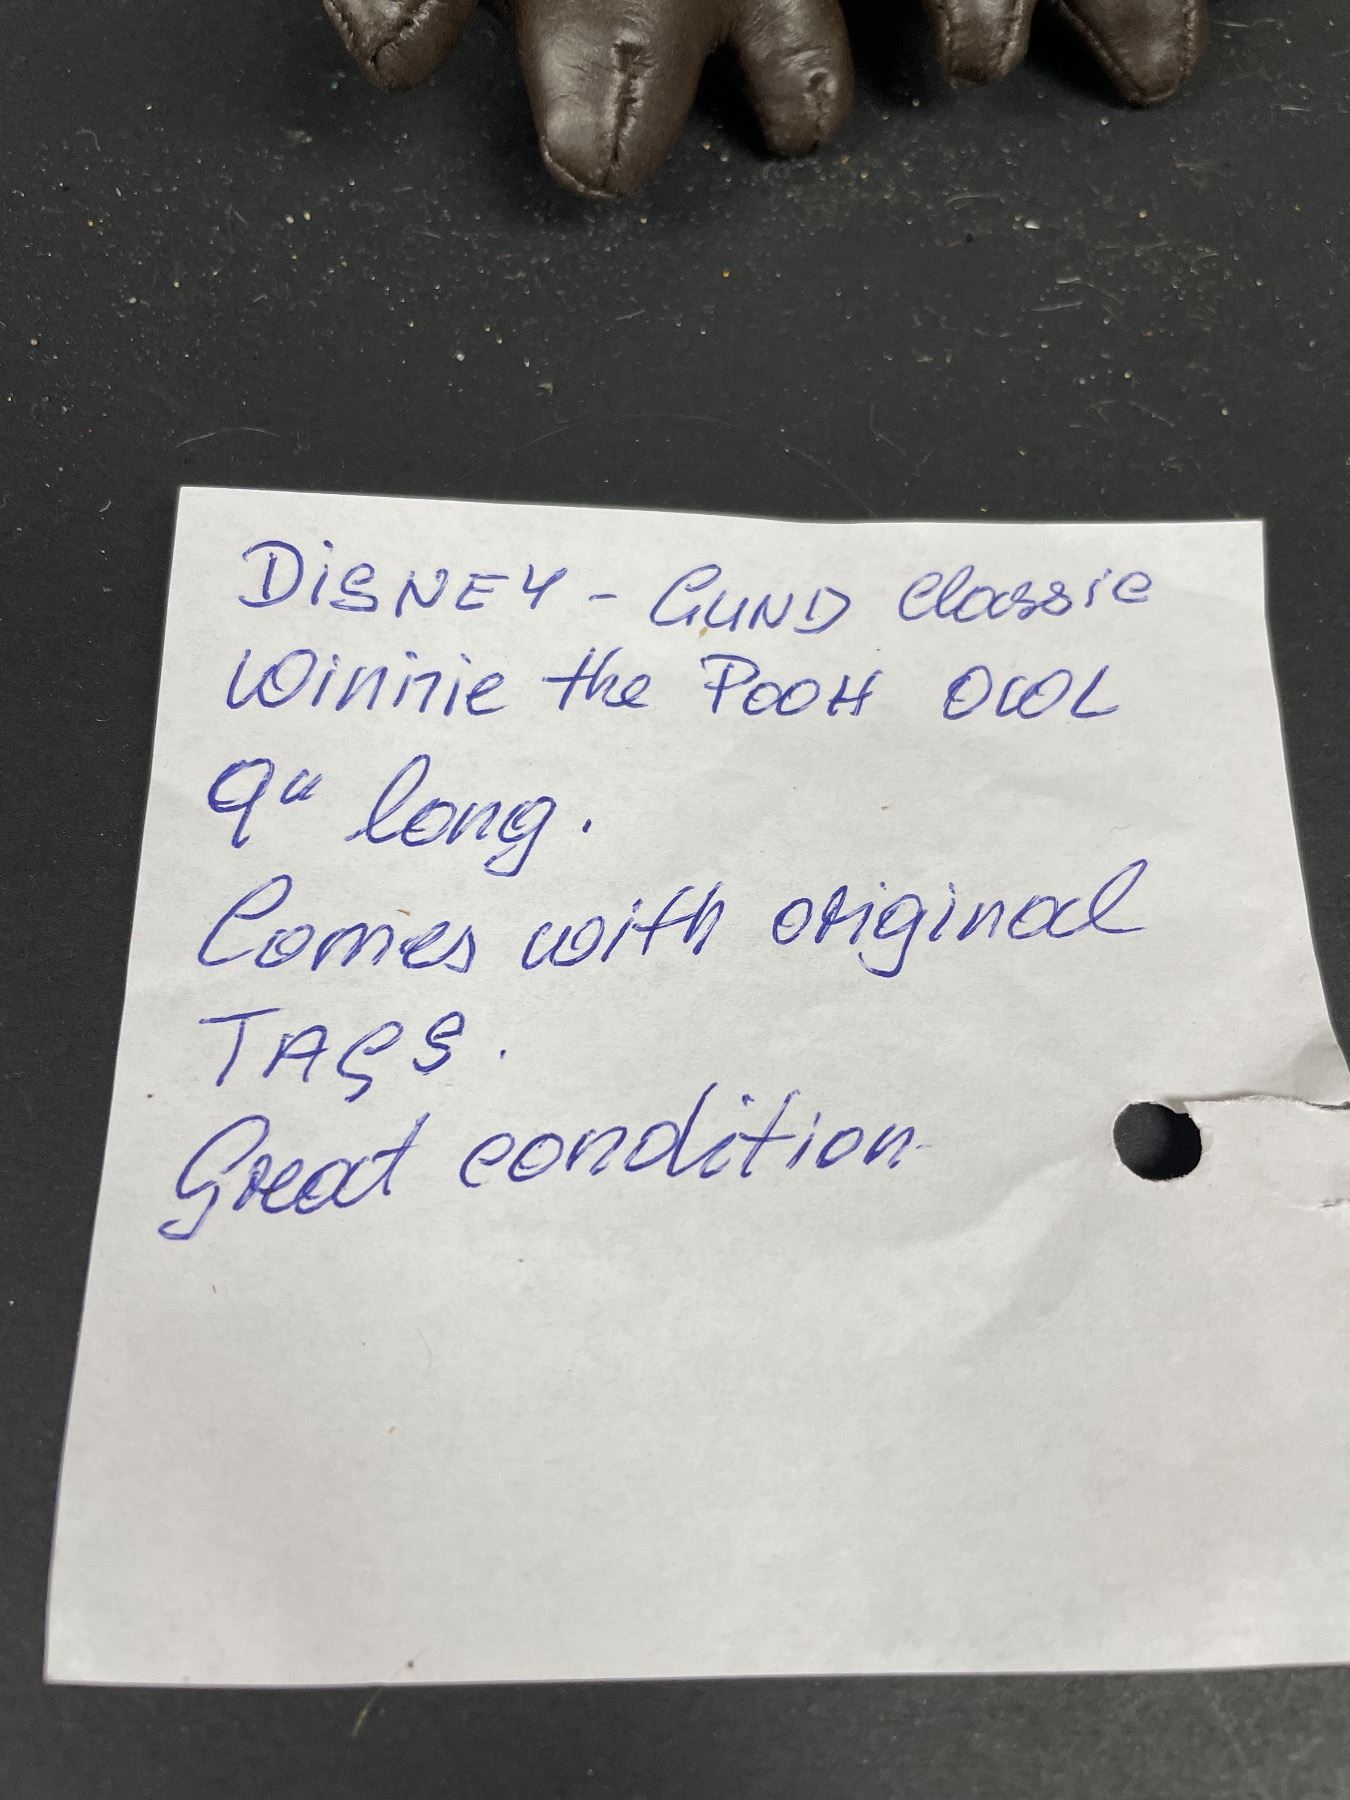 DISNEY - GUND Classic
Winnie the POOH OWL
9" long.
Comes with original
TAGS.
Great condition